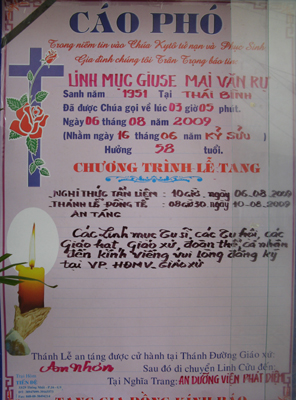 CÁO PHÓ
Trong niềm tin vào Chúa Kytô tử nạn và Phục Sinh
Gia đình chúng tôi Trân Trọng báo tin:
LINH MỤC GIUSE MAI VĂN RỰ
Sanh năm 1951 Tại THÁI BÌNH
Đã được Chúa gọi về lúc 03 giờ 05 phút.
Ngày 06 tháng 08 năm 2009
(Nhằm ngày 16 tháng 06 năm KỶ SỬU)
Hưởng 58 tuổi.
CHƯƠNG TRÌNH LỄ TANG
NGHI THỨC TẨN LIỆM : 10 giờ, ngày 06.08.2009
THÁNH LỄ ĐỒNG TẾ : 08 giờ 30 ngày 10-08-2009
AN TÁNG
Các Linh mục Tu sĩ, các Tu hội, các
Giáo hạt, Giáo xứ, đoàn thể, cá nhân
đến kính viếng vui lòng đăng ký
tại VP. HĐMV. Giáo xứ
Thánh Lễ an táng được cử hành tại Thánh Đường Giáo xứ:
An Nhơn Sau đó di chuyển Linh Cửu đến:
Tại Nghĩa Trang: AN DƯỠNG VIỆN PHÁT DIỆM
TANG GIA ĐỒNG KÍNH BÁO